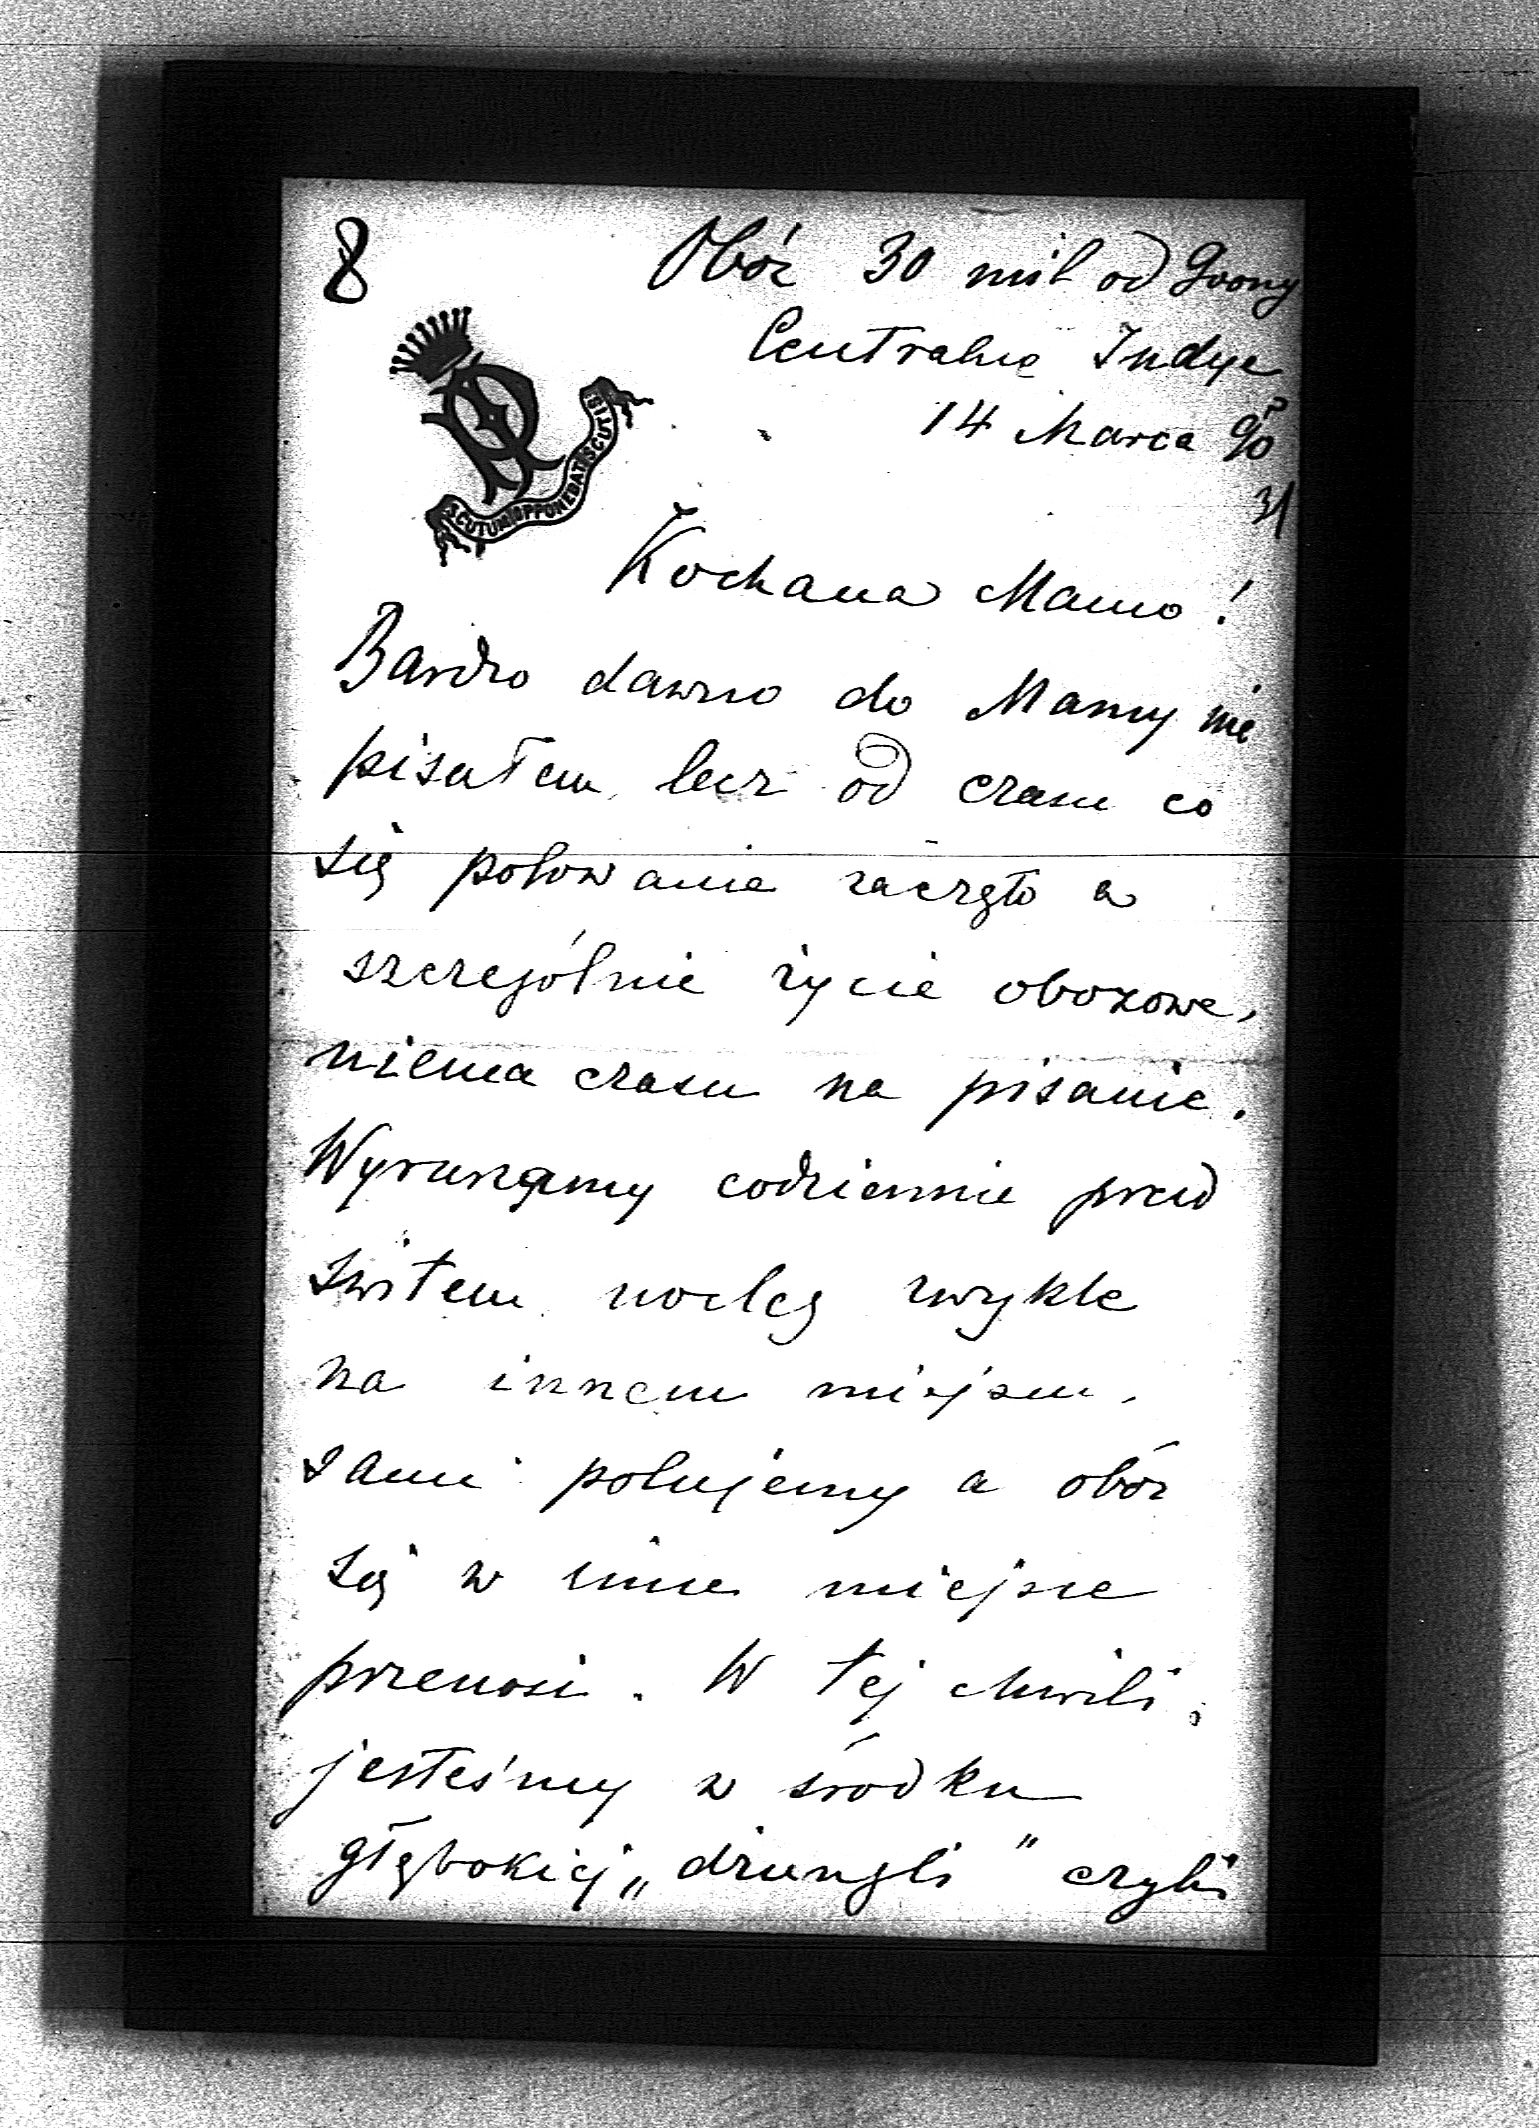 8
Obóz 30 mil od Goony
Centralne Indye
14 Marca 90
31
SCUTUM OPPONEBAT SCUTIS
Kochana Mamo!
Bardzo dawno do Mamy nie
pisałem, lecz od czasu co
się polowanie zaczęło a
szczególnie życie obozowe,
niema czasu na pisanie.
Wyruszamy codziennie przed
świtem nocleg zwykle
na innem miejscu,
sami polujemy a obóz
się w inne miejsce
przenosi. W tej chwili
jesteśmy w środku
głębokiej „dżungli" czyli